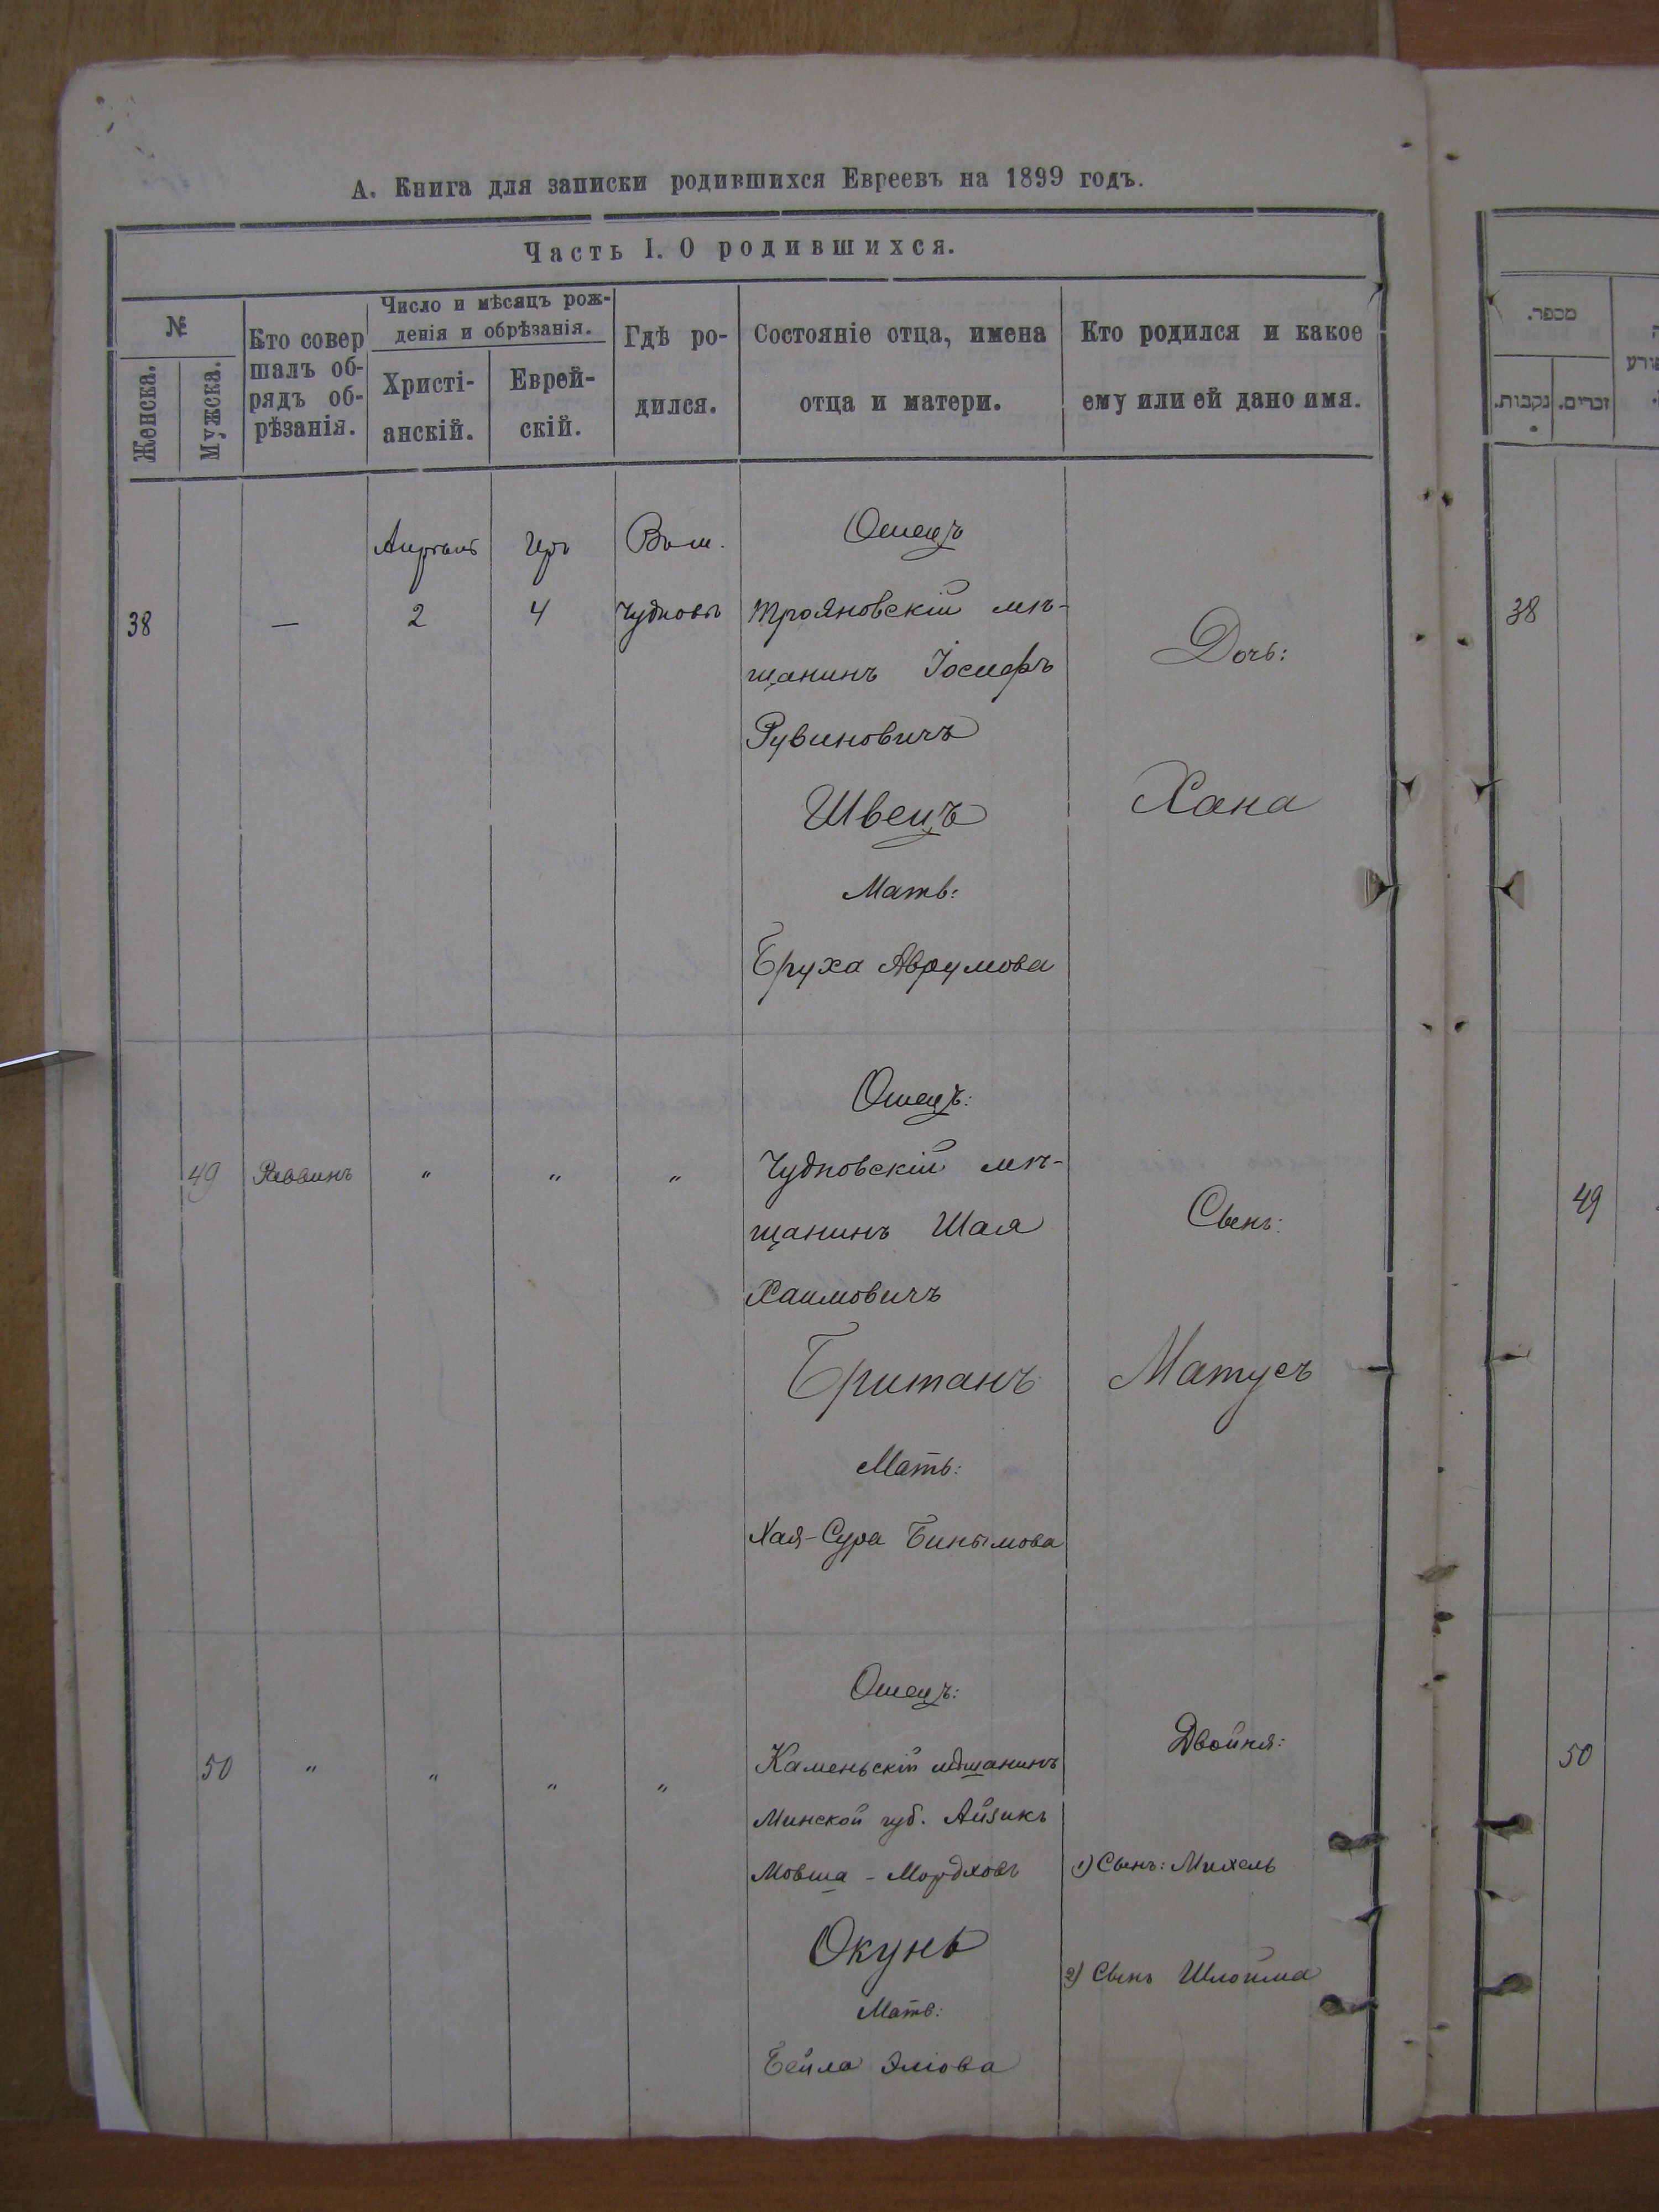 А. Книга для записки родившихся Евреевъ на 1899 годъ.
Часть I. О родившихся.
№
Женска.
Мужска.
Кто совер
шалъ об-
рядъ об-
рѣзанія.
Число и мѣсяцъ рож-
денія и обрѣзанія.
Христі-
анскій.
Еврей-
скій.
Гдѣ ро-
дился.
Состояніе отца, имена
отца и матери.
Кто родился и какое
ему или ей дано имя.
מספר.
נקבות.
זכרים.
38
—
Апрѣль
2
Іеръ
4
Въ м.
Чудновъ
Отецъ
Трояновскій мѣ-
щанинъ Іосифъ
Рувиновичъ
Швецъ
Мать:
Бруха Аврумова
Дочь:
Хана
38
49
Раввинъ
"
"
"
Отецъ:
Чудновскій мѣ-
щанинъ Шая
Хаимовичъ
Британъ
Мать:
Хая-Сура Бинымова
Сынъ:
Матусъ
49
50
"
"
"
"
Отецъ:
Каменьскій мѣщанинъ
Минской губ. Айзикъ
Мовша - Мордховъ
Окунь
Мать:
Бейла Эліова
Двойня:
1) Сынъ: Михель
2) Сынъ Шлойма
50